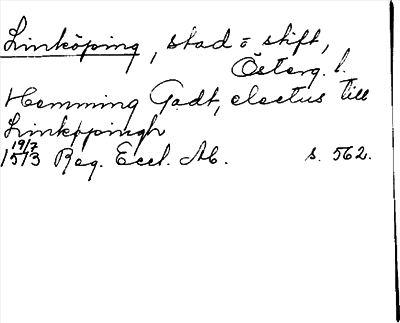 Linköping, stad o stift,
Österg. l.
Hemming Gadt, electus till
Linköpingh
19/7
1513 Reg. Eccl. Ab. s. 562.